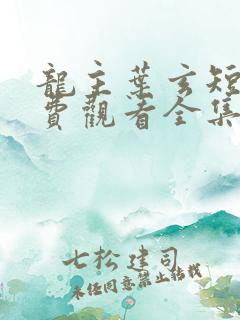 龍主葉玄短
費觀看全集
七松建司
未任同意禁止结载